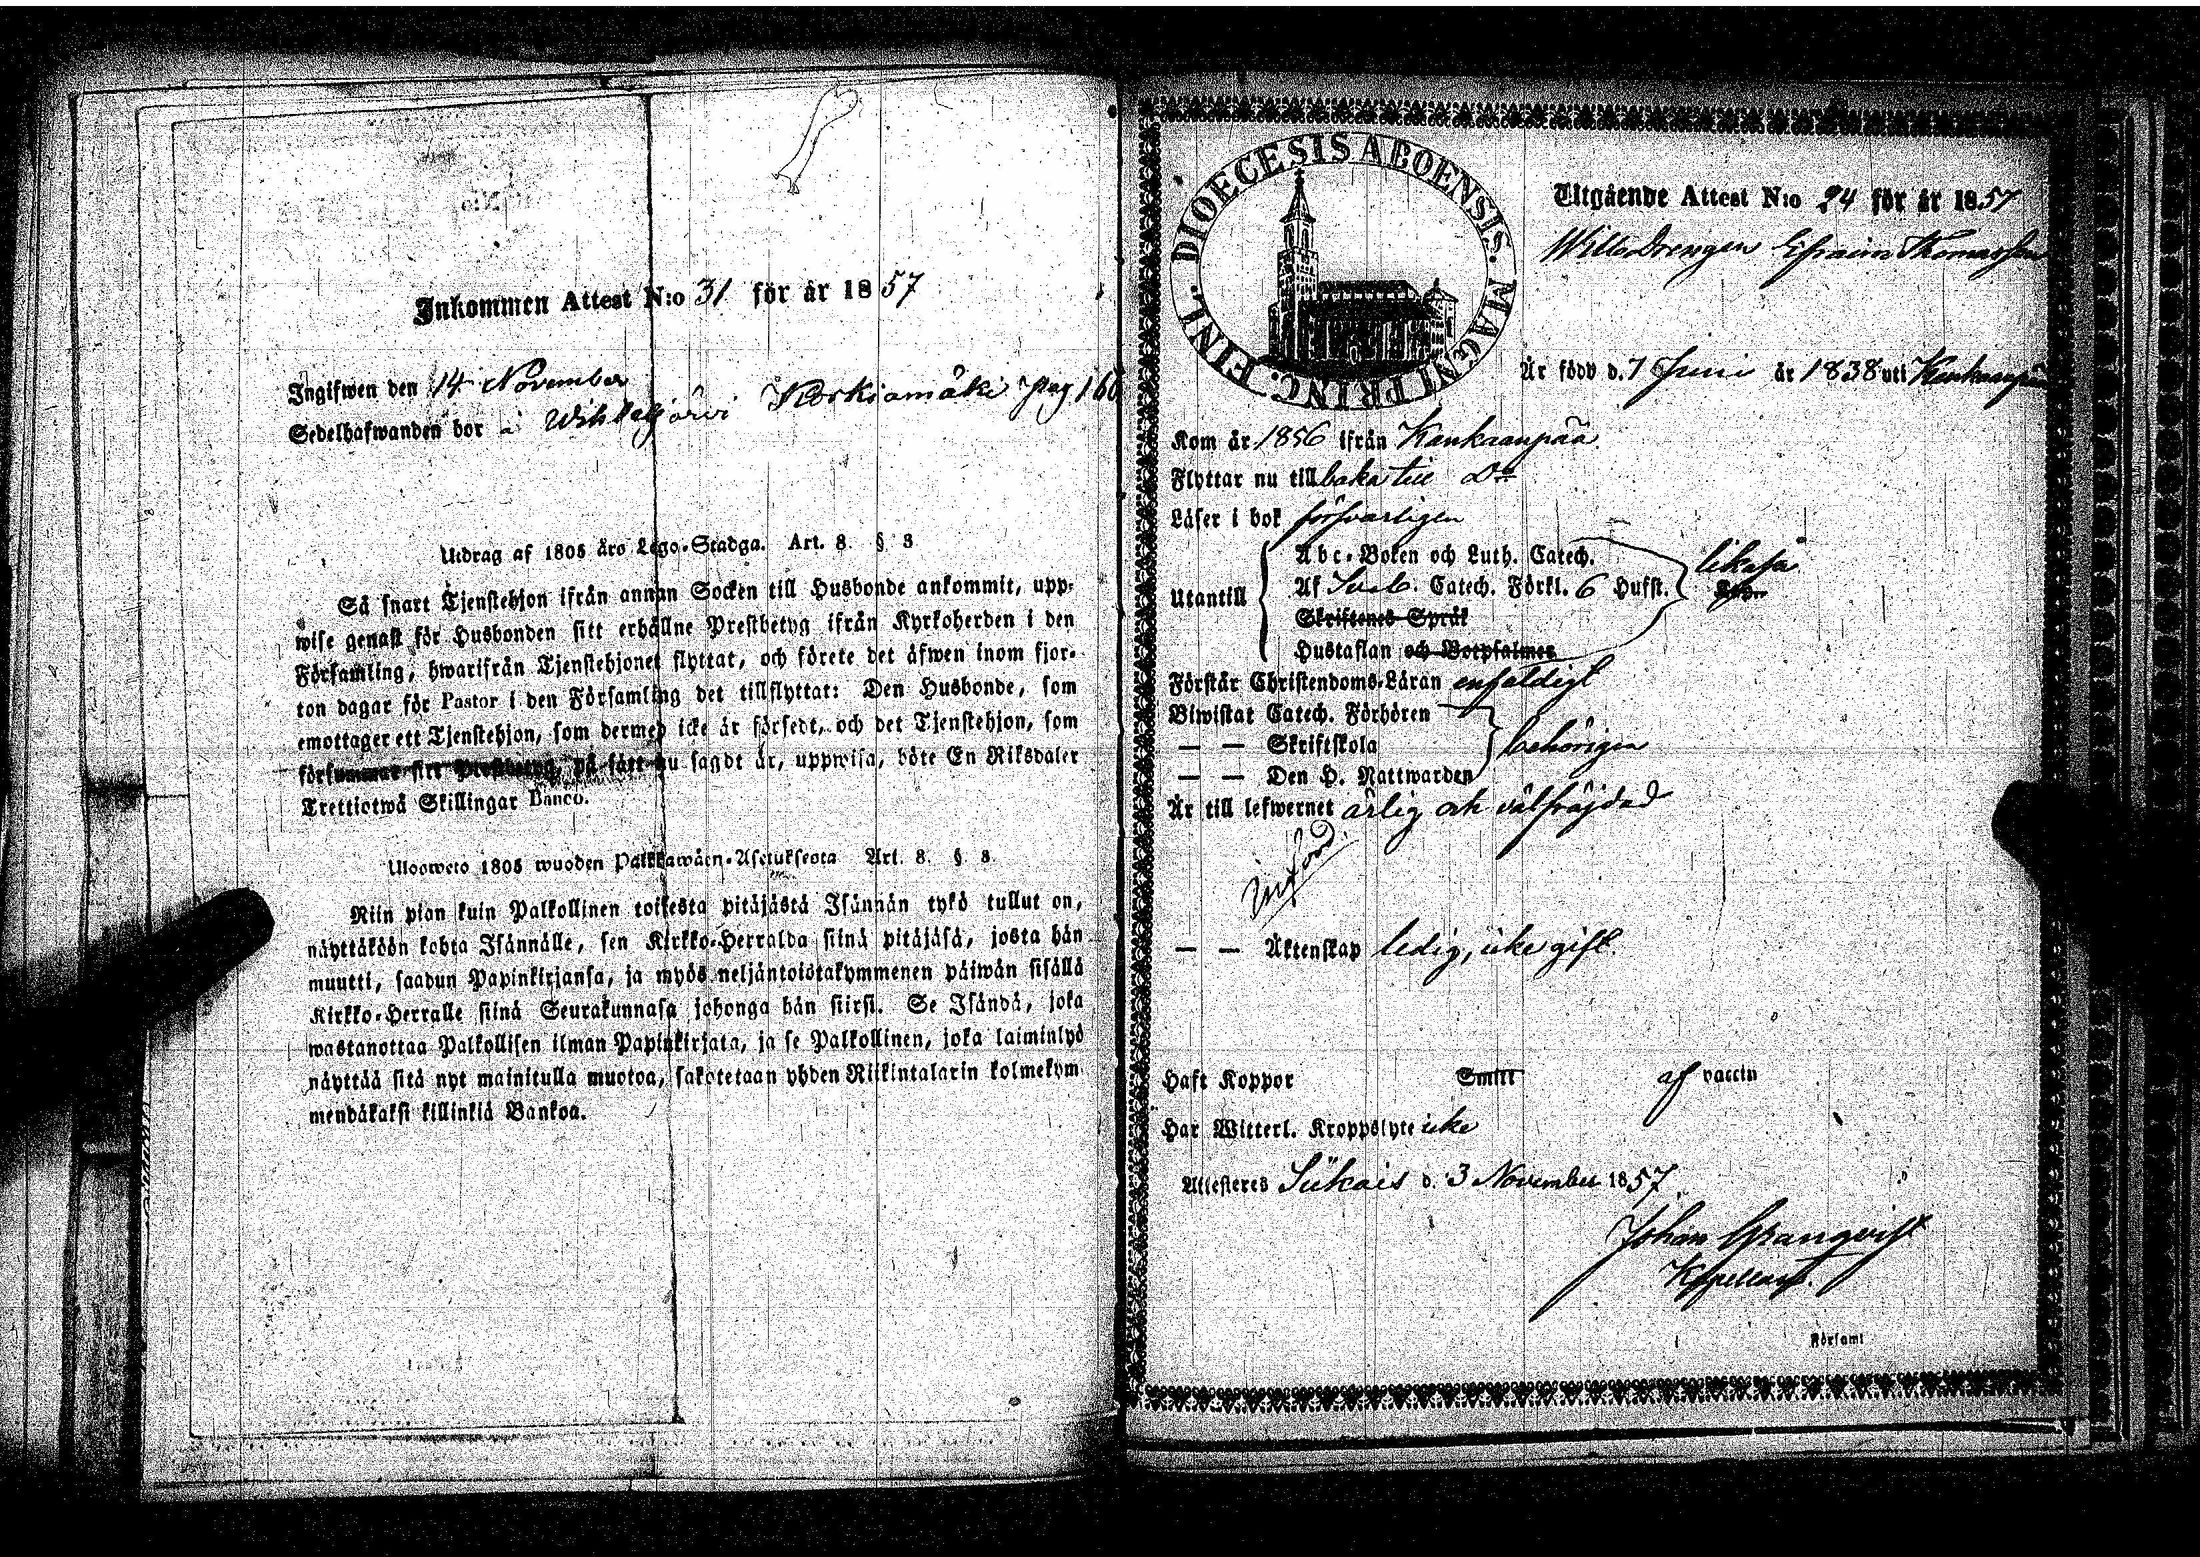 Inkommen Attest N:o 31 för år 1857
Ingifwen den 14 November
Sedelhafwanden bor å Korkiamäki pag 166
Utdrag af 1805 års Lego-Stadga. Art. 8. § 3
Så snart Tjenstehjon ifrån annan Socken till Husbonde ankommit, upp-
wise genast för Husbonden sitt erhållne Prestbetyg ifrån Kyrkoherden i den
Församling, hwarifrån Tjenstehjonet flyttat, och förete det äfwen inom fjor-
ton dagar för Pastor i den Församling det tillflyttat: Den Husbonde, som
emottager ett Tjenstehjon, som dermed icke är försedt, och det Tjenstehjon, som
försummar sitt Prestbetyg, på sätt nu sagdt är, uppwisa, böte En Riksdaler
Trettiotwå Skillingar Banco.
Ulosweto 1805 wuoden Palkkawäen-Asetuksesta Art. 8. § 3.
Niin pian kuin Palkollinen toisesta pitäjästä Isännän tykö tullut on,
näyttäköön kohta Isännälle, sen Kirkko-Herralda siinä pitäjäsä, josta hän
muutti, saadun Papinkirjansa, ja myös neljäntoistakymmenen päiwän sisällä
Kirkko-Herralle siinä Seurakunnasa johonga hän siirsi. Se Isändä, joka
wastanottaa Palkollisen ilman Papinkirjata, ja se Palkollinen, joka laiminlyö
näyttää sitä nyt mainitulla muotoa, sakotetaan yhden Riikintalarin kolmekym-
mendäkaksi killinkiä Bankoa.
FINL. DIOECESIS ABOENSIS. MAGNI PRINC.
Utgående Attest N:o 24 för år 1857
Drengen Efraim Thomasson
Är född d. 7 Juni år 1838 uti Kankaanpää
Kom år 1856 ifrån Kankaanpää
Flyttar nu till baka till Do
Läser i bok försvarligen
Abc-Boken och Luth. Catech. likaså
Utantill Af Sveb. Catech. Förkl. 6 Hufst.
Skriftenes Språk
Hustaflan och Botpsalmer
Förstår Christendoms-Läran enfaldigt
Biwistat Catech. Förhören
— — Skriftskola behörigen
— — Den H. Nattwarden
Är till lefwernet ärlig och välfräjdad
— — Äktenskap ledig, icke gift.
Haft Koppor Smitt af vaccin
Har Witterl. Kroppslyte icke
Attesteres Siikais d. 3 November 1857
Johan Granqvist
Kapellan.
Församl